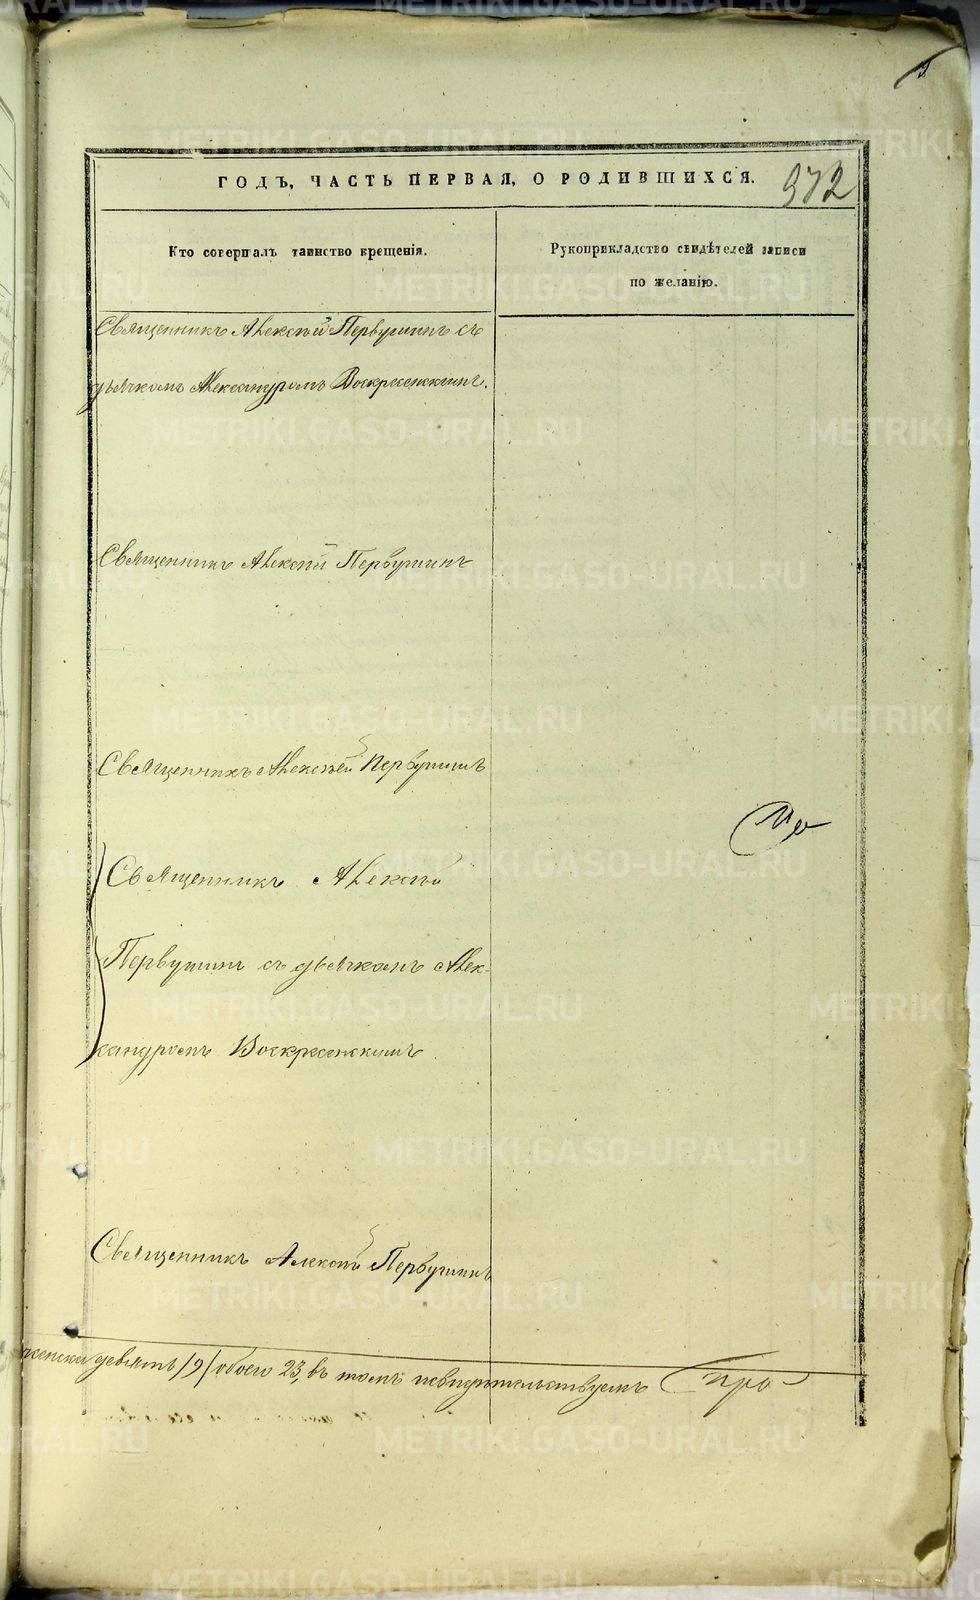 ГОДЪ, ЧАСТЬ ПЕРВАЯ, О РОДИВШИХСЯ.
972
Кто совершалъ таинство крещенія.
Рукоприкладство свидѣтелей записи
по желанію.
Священникъ Алексѣй Первушинъ съ
дьячкомъ Александромъ Воскресенскимъ.
Священникъ Алексѣй Первушинъ
Священникъ Алексѣй Первушинъ
Священникъ Алексѣй
Первушинъ съ дьячкомъ Алек-
сандромъ Воскресенскимъ.
Священникъ Алексѣй Первушинъ
женска девять /9/ обоего 23, въ томъ свидѣтельствуемъ
METRIKI.GASO-URAL.RU